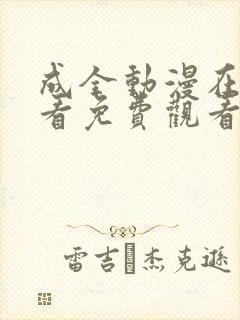 成全動漫在
看免費觀看
雷吉·杰克遜